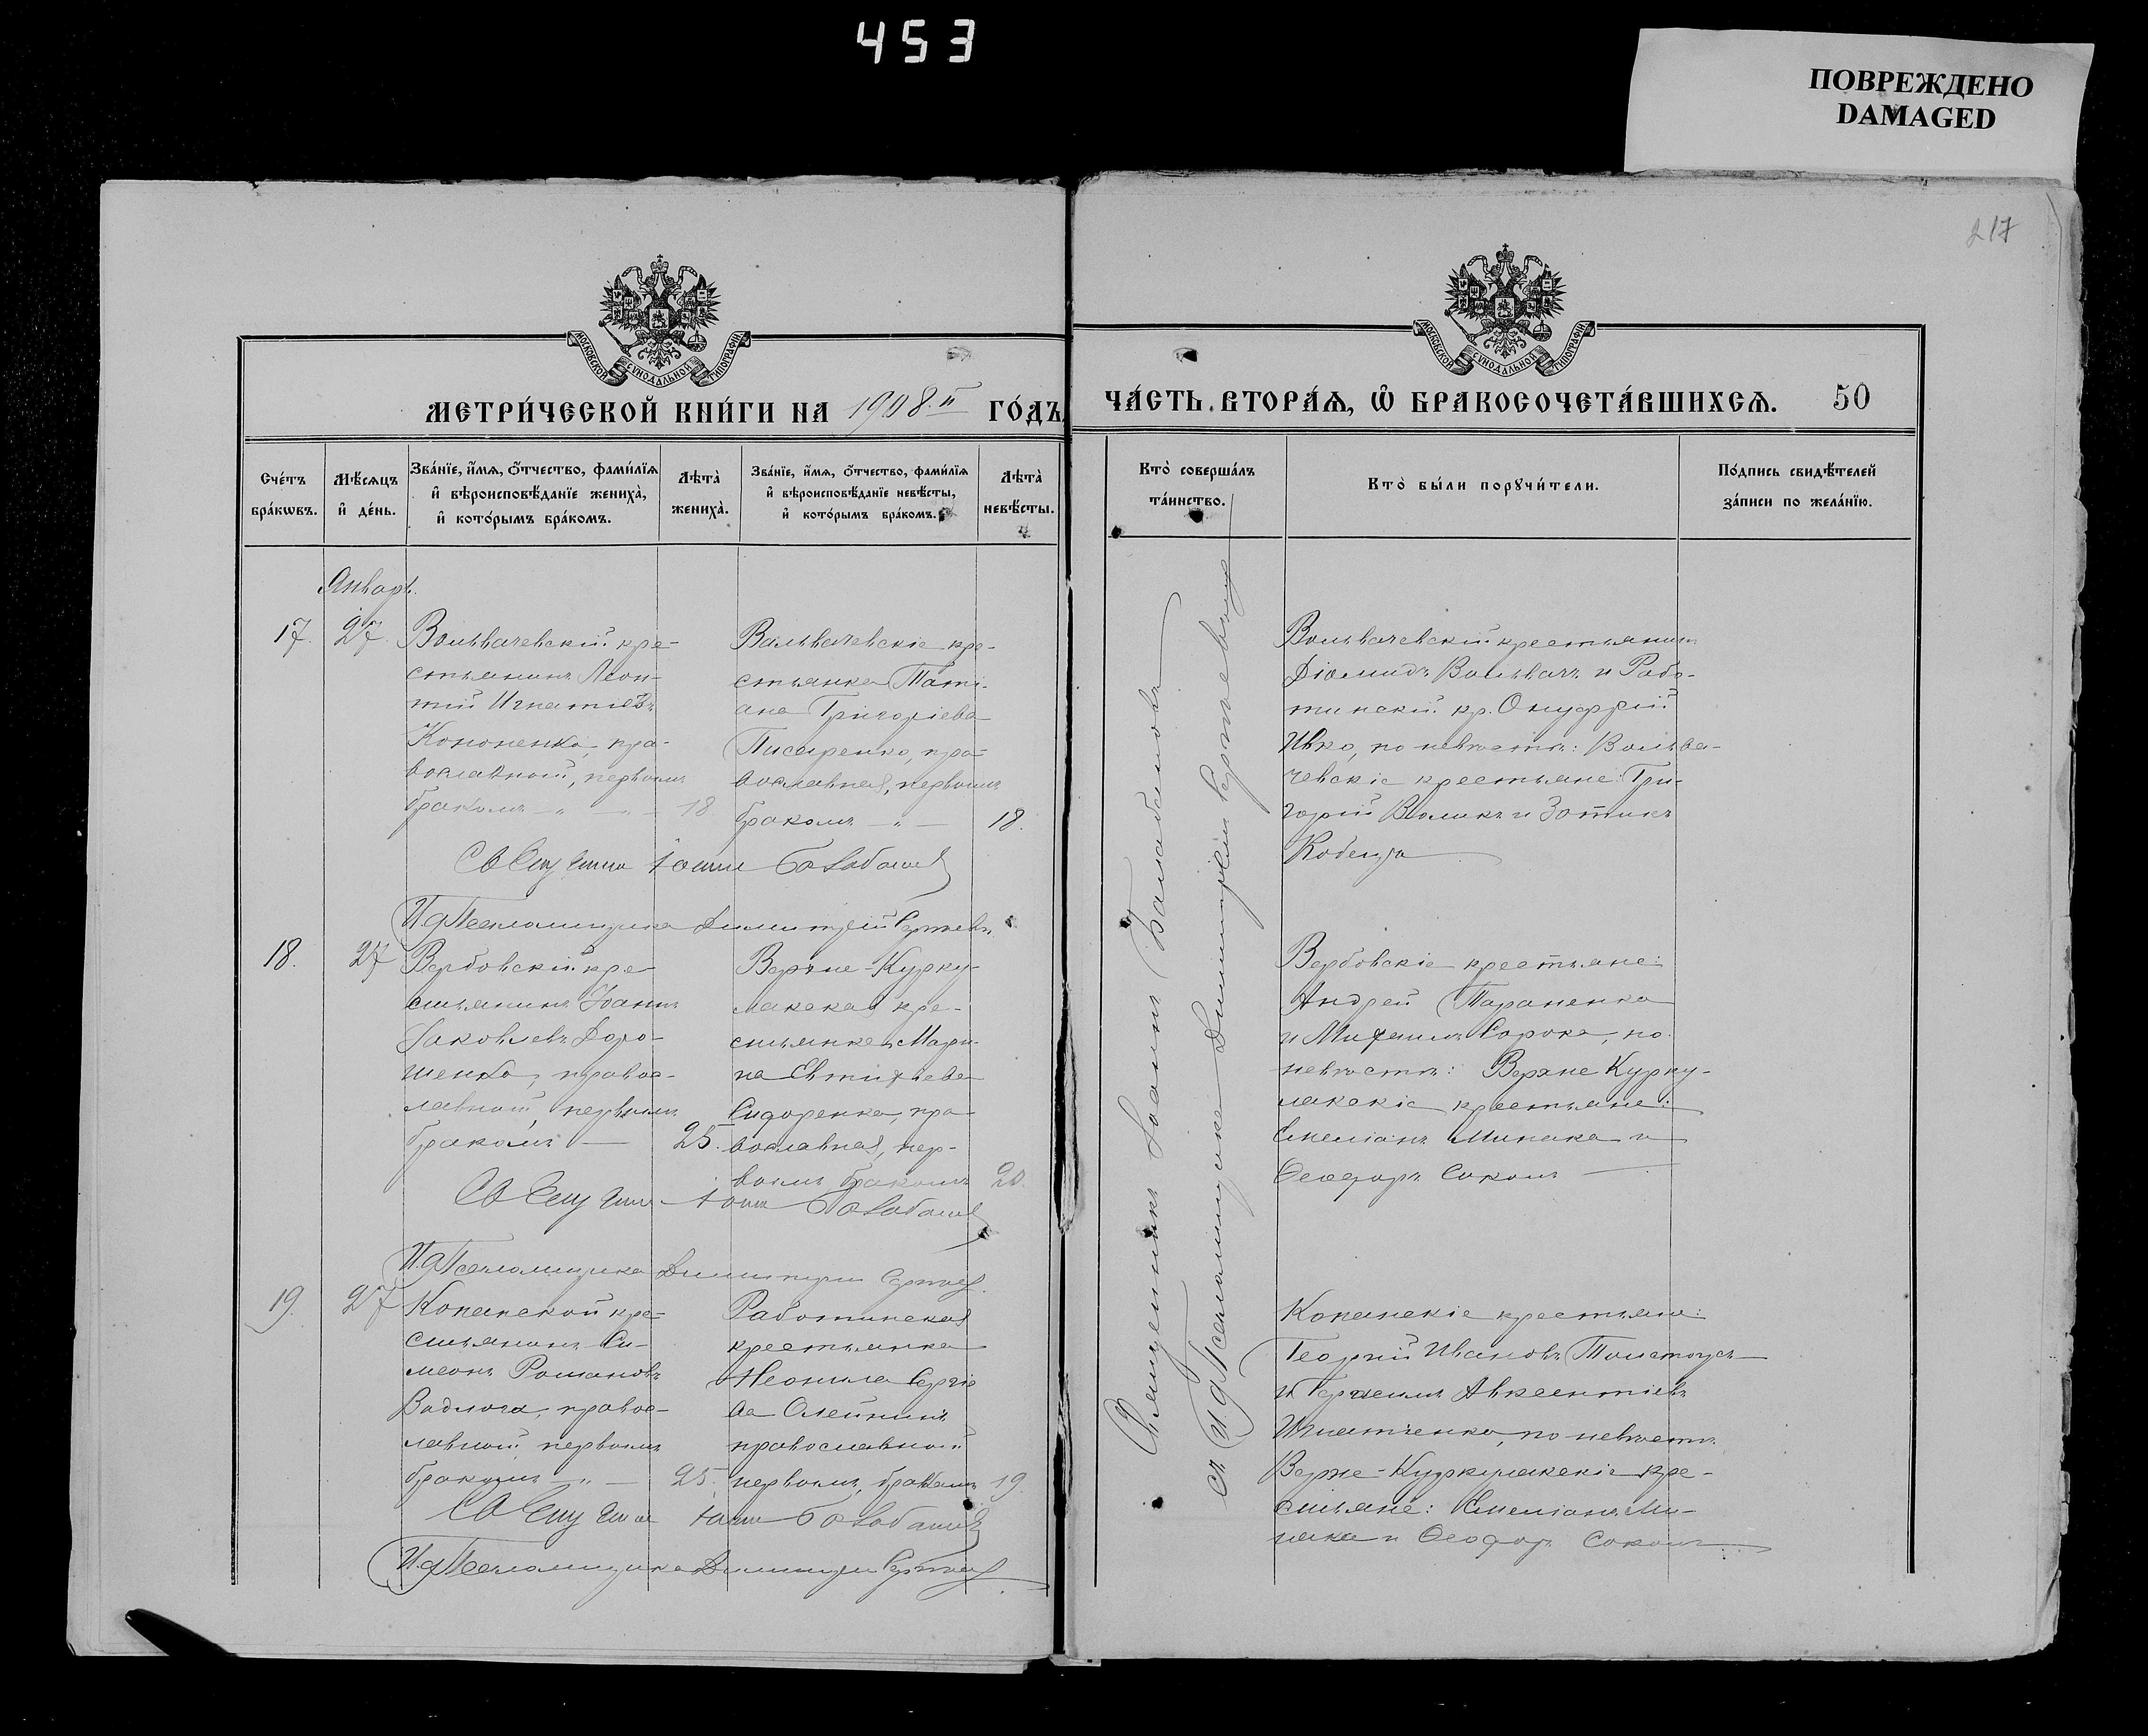 453
ПОВРЕЖДЕНО
DAMAGED
217
МОСКОВСКОЙ СУНОДАЛЬНОЙ ТИПОГРАФІИ
МОСКОВСКОЙ СУНОДАЛЬНОЙ ТИПОГРАФІИ
МЕТРИ́ЧЕСКОЙ КНИ́ГИ НА 1908.й ГО́ДЪ,
ЧА́СТЬ ВТОРА́Ѧ, Ѽ БРАКОСОЧЕТА́ВШИХСѦ. 50
Сче́тъ
бра́кѡвъ.
Мѣ́сѧцъ
и҆ де́нь.
Зва́нїе, и҆́мѧ, ѻ҆́тчество, фами́лїѧ
и҆ вѣроисповѣ́данїе жениха̀,
и҆ кото́рымъ бра́комъ.
Лѣ́та
жениха̀.
Зва́нїе, и҆́мѧ, ѻ҆́тчество, фами́лїѧ
и҆ вѣроисповѣ́данїе невѣ́сты,
и҆ кото́рымъ бра́комъ.
Лѣ́та
невѣ́сты.
Кто̀ соверша́лъ
та́инство.
Кто̀ бы́ли порꙋчи́тели.
По́дпись свидѣ́телей
за́писи по жела́нїю.
Январь.
17.
27.
Вольвачевскій кре-
стьянинъ Леон-
тій Игнатіевъ
Кононенко, пра-
вославный, первымъ
бракомъ - " -
18
Вальвачевскіе кре-
стьянка Тати-
ана Григоріева
Писаренко, пра-
вославная, первымъ
бракомъ - " -
18.
Вольвачевскій крестьянинъ
Діомидъ Вольвачъ и Рабо-
тинскій кр. Онуфрій
Ивко, по невѣстѣ: Вольва-
чевскіе крестьяне: Гри-
горій Воликъ и Зотикъ
Кобенза
Священникъ Іоаннъ Балабановъ
И.д. Псаломщика Димитрій Сергѣевъ
18.
27
Вербовскій кре-
стьянинъ Іоаннъ
Іаковлевъ Доро-
шенко, правос-
лавный, первымъ
бракомъ -
25.
Верхне-Курку-
лакская кре-
стьянка Мари-
на Евтихіева
Сидоренко, пра-
вославная, пер-
вымъ бракомъ
20.
Вербовскіе крестьяне:
Андрей Тараненко
и Михаилъ Сорока, по
невѣстѣ: Верхне Курку-
лакскіе крестьяне:
Емеліанъ Минака и
Ѳеодоръ Соколъ
Священникъ Іоаннъ Балабановъ
И.д. Псаломщика Димитрій Сергѣевъ
19.
27
Копанской кре-
стьянинъ Си-
меонъ Романовъ
правос-
лавный первымъ
бракомъ - " -
25.
Работинская
крестьянка
Неонила Сергіе
ва Олейникъ
православной
первымъ бракомъ
19.
Копанскіе крестьяне:
Георгій Ивановъ Толстоусъ
и Герасимъ Авксентіевъ
Игнатченко, по невѣстѣ
Верхне-Куркулакскіе кре-
стьяне: Емеліанъ Ми-
нака и Ѳеодоръ Соколъ.
Священникъ Іоаннъ Балабановъ
И.д. Псаломщика Димитрій Сергѣевъ
Священникъ Іоаннъ Балабановъ
съ И.д. Псаломщика Димитріемъ Сергѣевымъ